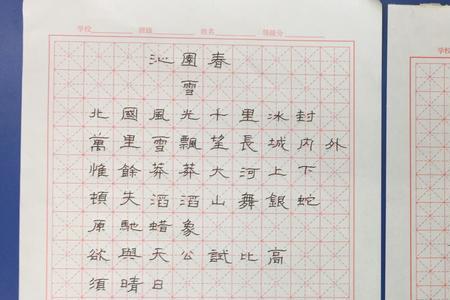 学校 班级 姓名
沁 園 春
雪
北 國 風 光 千 里 冰 封
萬 里 雪 飄 望 長 城 内 外
惟 餘 莽 莽 大 河 上 下
頓 失 滔 滔 山 舞 銀 蛇
原 馳 蜡 象
欲 與 天 公 試 比 高
須 晴 日